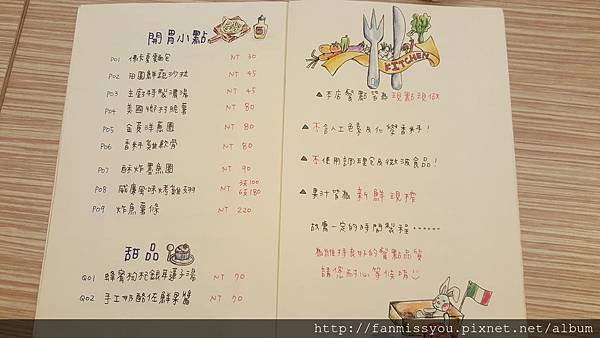 開胃小點
P01 佛卡夏麵包 NT 30
P02 田園鮮蔬沙拉 NT 45
P03 主廚特製濃湯 NT 45
P04 美國鄉村脆薯 NT 80
P05 金黃洋蔥圈 NT 80
P06 香料雞軟骨 NT 80
P07 酥炸墨魚圈 NT 90
P08 威廉風味烤雞翅 3支100 6支180
P09 炸魚薯條 NT 220
甜品
Q01 蜂蜜枸杞銀耳蓮子湯 NT 70
Q02 手工奶酪佐鮮果醬 NT 70
KITCHEN
▲本店餐點皆為現點現做
▲不含人工色素&化學香料!
▲不使用調理包及微波食品!
▲果汁皆為新鮮現搾
故需一定的時間製程……
為維持良好的餐點品質
請您耐心等候唷
http://fanmissyou.pixnet.net/album